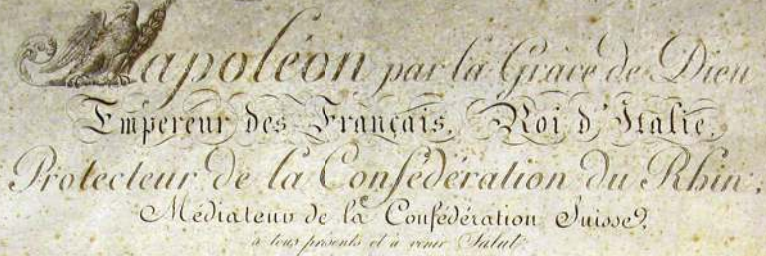 Napoléon par la Grâce de Dieu
Empereur des Français, Roi d'Italie,
Protecteur de la Confédération du Rhin,
Médiateur de la Confédération Suisse,
à tous présents et à venir Salut